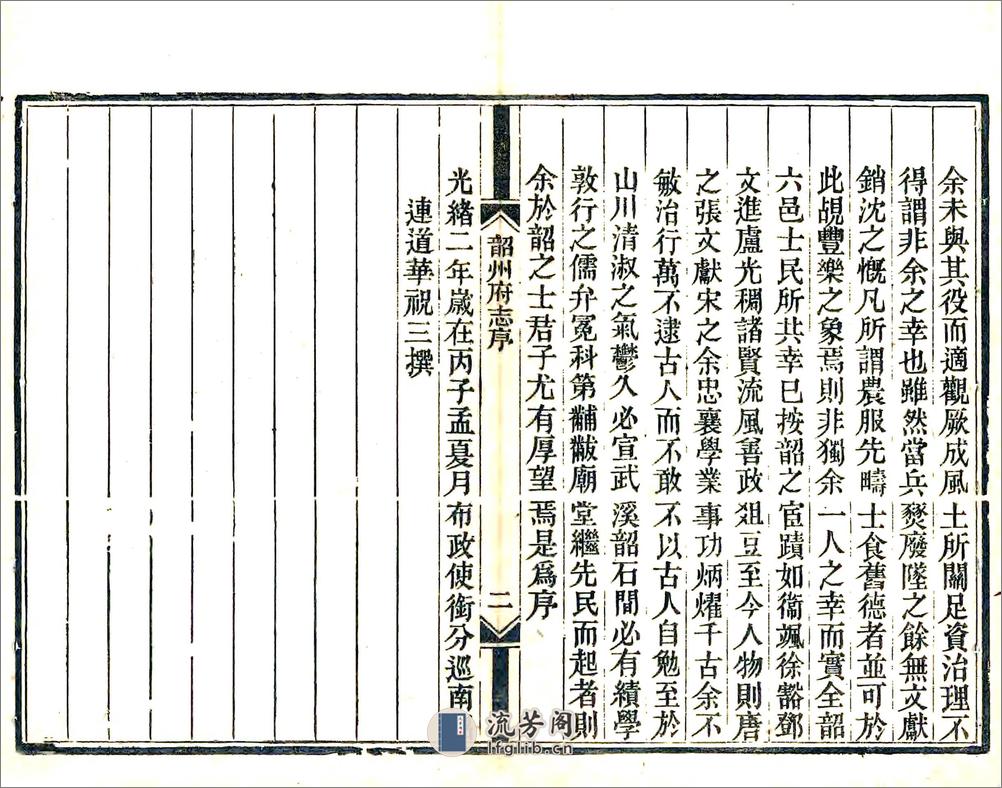 余未與其役而適觀厥成風土所關足資治理不
得謂非余之幸也雖然當兵燹廢墜之餘無文獻
銷沈之慨凡所謂農服先疇士食舊德者並可於
此覘豐樂之象焉則非獨余一人之幸而實全韶
六邑士民所共幸已按韶之宦蹟如衞颯徐豁鄧
文進盧光稠諸賢流風善政俎豆至今人物則唐
之張文獻宋之余忠襄學業事功炳燿千古余不
敏治行萬不逮古人而不敢不以古人自勉至於
山川清淑之氣鬱久必宣武溪韶石間必有績學
敦行之儒弁冕科第黼黻廟堂繼先民而起者則
余於韶之士君子尤有厚望焉是爲序
韶州府志序
二
光緒二年歲在丙子孟夏月布政使銜分巡南
連道華祝三撰
流芳阁
lfglib.cn